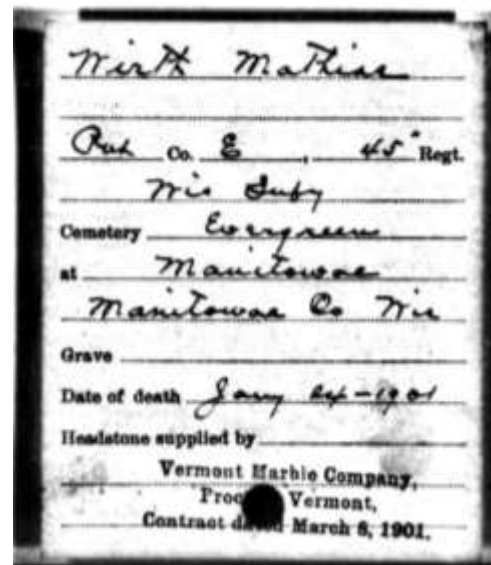 Wirth Mathias
Pvt Co. E, 45" Regt.
Wis Infy
Cemetery Evergreen
at Manitowoc
Manitowoc Co Wis
Grave
Date of death Jany 24-1901
Headstone supplied by
Vermont Marble Company,
Vermont,
Contract dated March 8, 1901.